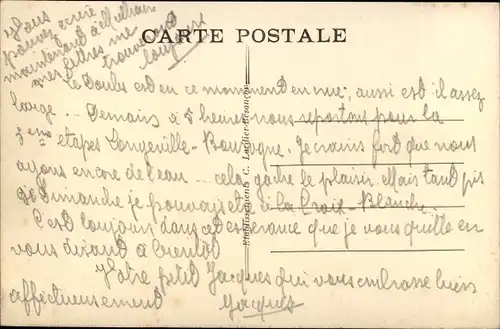 Vous
pouvez écrire
maintenant à Mulhouse
mes lettres me
trouveront
toujours
CARTE POSTALE
Le Doubs est en ce moment en crue, aussi est il assez
large ... Demain à 5 heures nous repartons pour la
3ème étapes Longeville-Bourogne. Je crains fort que nous
ayons encore de l'eau ... cela gache le plaisir. Mais tant pis
si dimanche je pouvais etre à la Croix-Blanche.
C'est toujours dans cet espérance que je vous quitte en
vous disant à bientôt
Votre petit Jacques qui vous embrasse bien
affectueusement
Jacques
Etablissements C. Lardier-Besançon